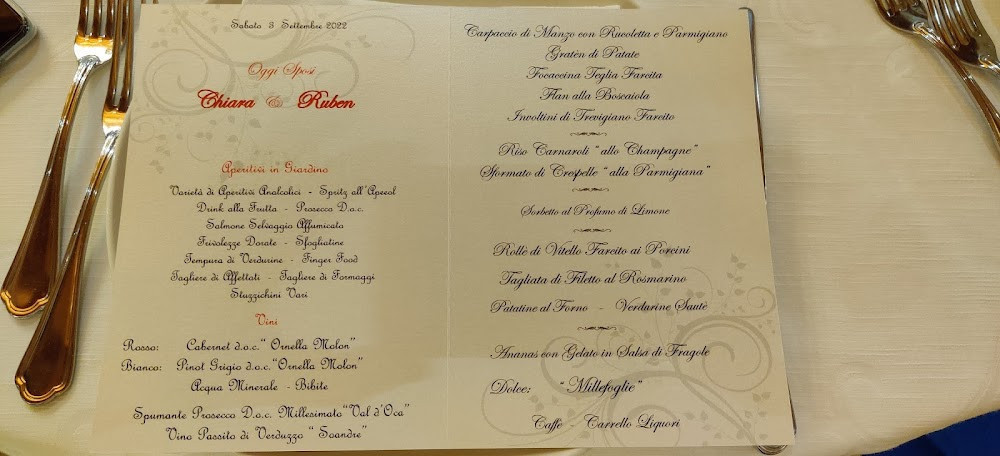 Sabato 3 Settembre 2022
Oggi Sposi
Chiara & Ruben
Aperitivi in Giardino
Varietà di Aperitivi Analcolici - Spritz all'Apeeol
Drink alla Frutta - Prosecco D.o.c.
Salmone Selvaggio Affumicato
Frivolezze Dorate - Sfogliatine
Tempura di Verdurine - Finger Food
Tagliere di Affettati - Tagliere di Formaggi
Stuzzichini Vari
Vini
Rosso: Cabernet d.o.c." Ornella Molon"
Bianco: Pinot Grigio d.o.c."Ornella Molon"
Acqua Minerale - Bibite
Spumante Prosecco D.o.c. Millesimato"Val d'Oca"
Vino Passito di Verduzzo " Soandre"
Carpaccio di Manzo con Rucoletta e Parmigiano
Gratèn di Patate
Focaccina Teglia Farcita
Flan alla Boscaiola
Involtini di Trevigiano Farcito
Riso Carnaroli "allo Champagne"
Sformato di Crespelle "alla Parmigiana"
Sorbetto al Profumo di Limone
Rollè di Vitello Farcito ai Porcini
Tagliata di Filetto al Rosmarino
Patatine al Forno - Verdurine Sautè
Ananas con Gelato in Salsa di Fragole
Dolce: "Millefoglie"
Caffè - Carrello Liquori